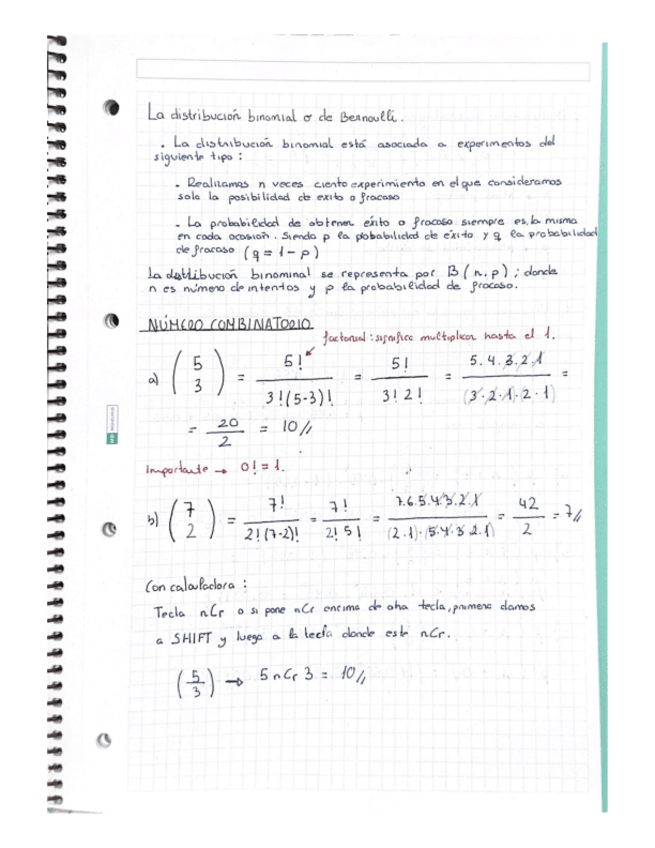 La distribución binomial o de Bernoulli.
. La distribución binomial está asociada a experimentos del
siguiente tipo :
- Realizamos n veces cierto experimento en el que consideramos
solo la posibilidad de exito o fracaso
- La probabilidad de obtener éxito o fracaso siempre es la misma
en cada ocasión. Siendo p la probabilidad de éxito y q la probabilidad
de fracaso (q = 1 - p)
La distribución binominal se representa por B(n, p) ; donde
n es número de intentos y p la probabilidad de fracaso.
NÚMERO COMBINATORIO
factorial : significa multiplicar hasta el 1.
a) (5 3) = 5! / 3!(5-3)! = 5! / 3! 2! = 5.4.3.2.1 / (3.2.1.2.1) =
= 20 / 2 = 10//
Importante → 0! = 1.
b) (7 2) = 7! / 2!(7-2)! = 7! / 2! 5! = 7.6.5.4.3.2.1 / (2.1).(5.4.3.2.1) = 42 / 2 = 7//
Con calculadora :
Tecla nCr o si pone nCr encima de otra tecla, primero damos
a SHIFT y luego a la tecla donde este nCr.
(5/3) → 5 nCr 3 = 10//